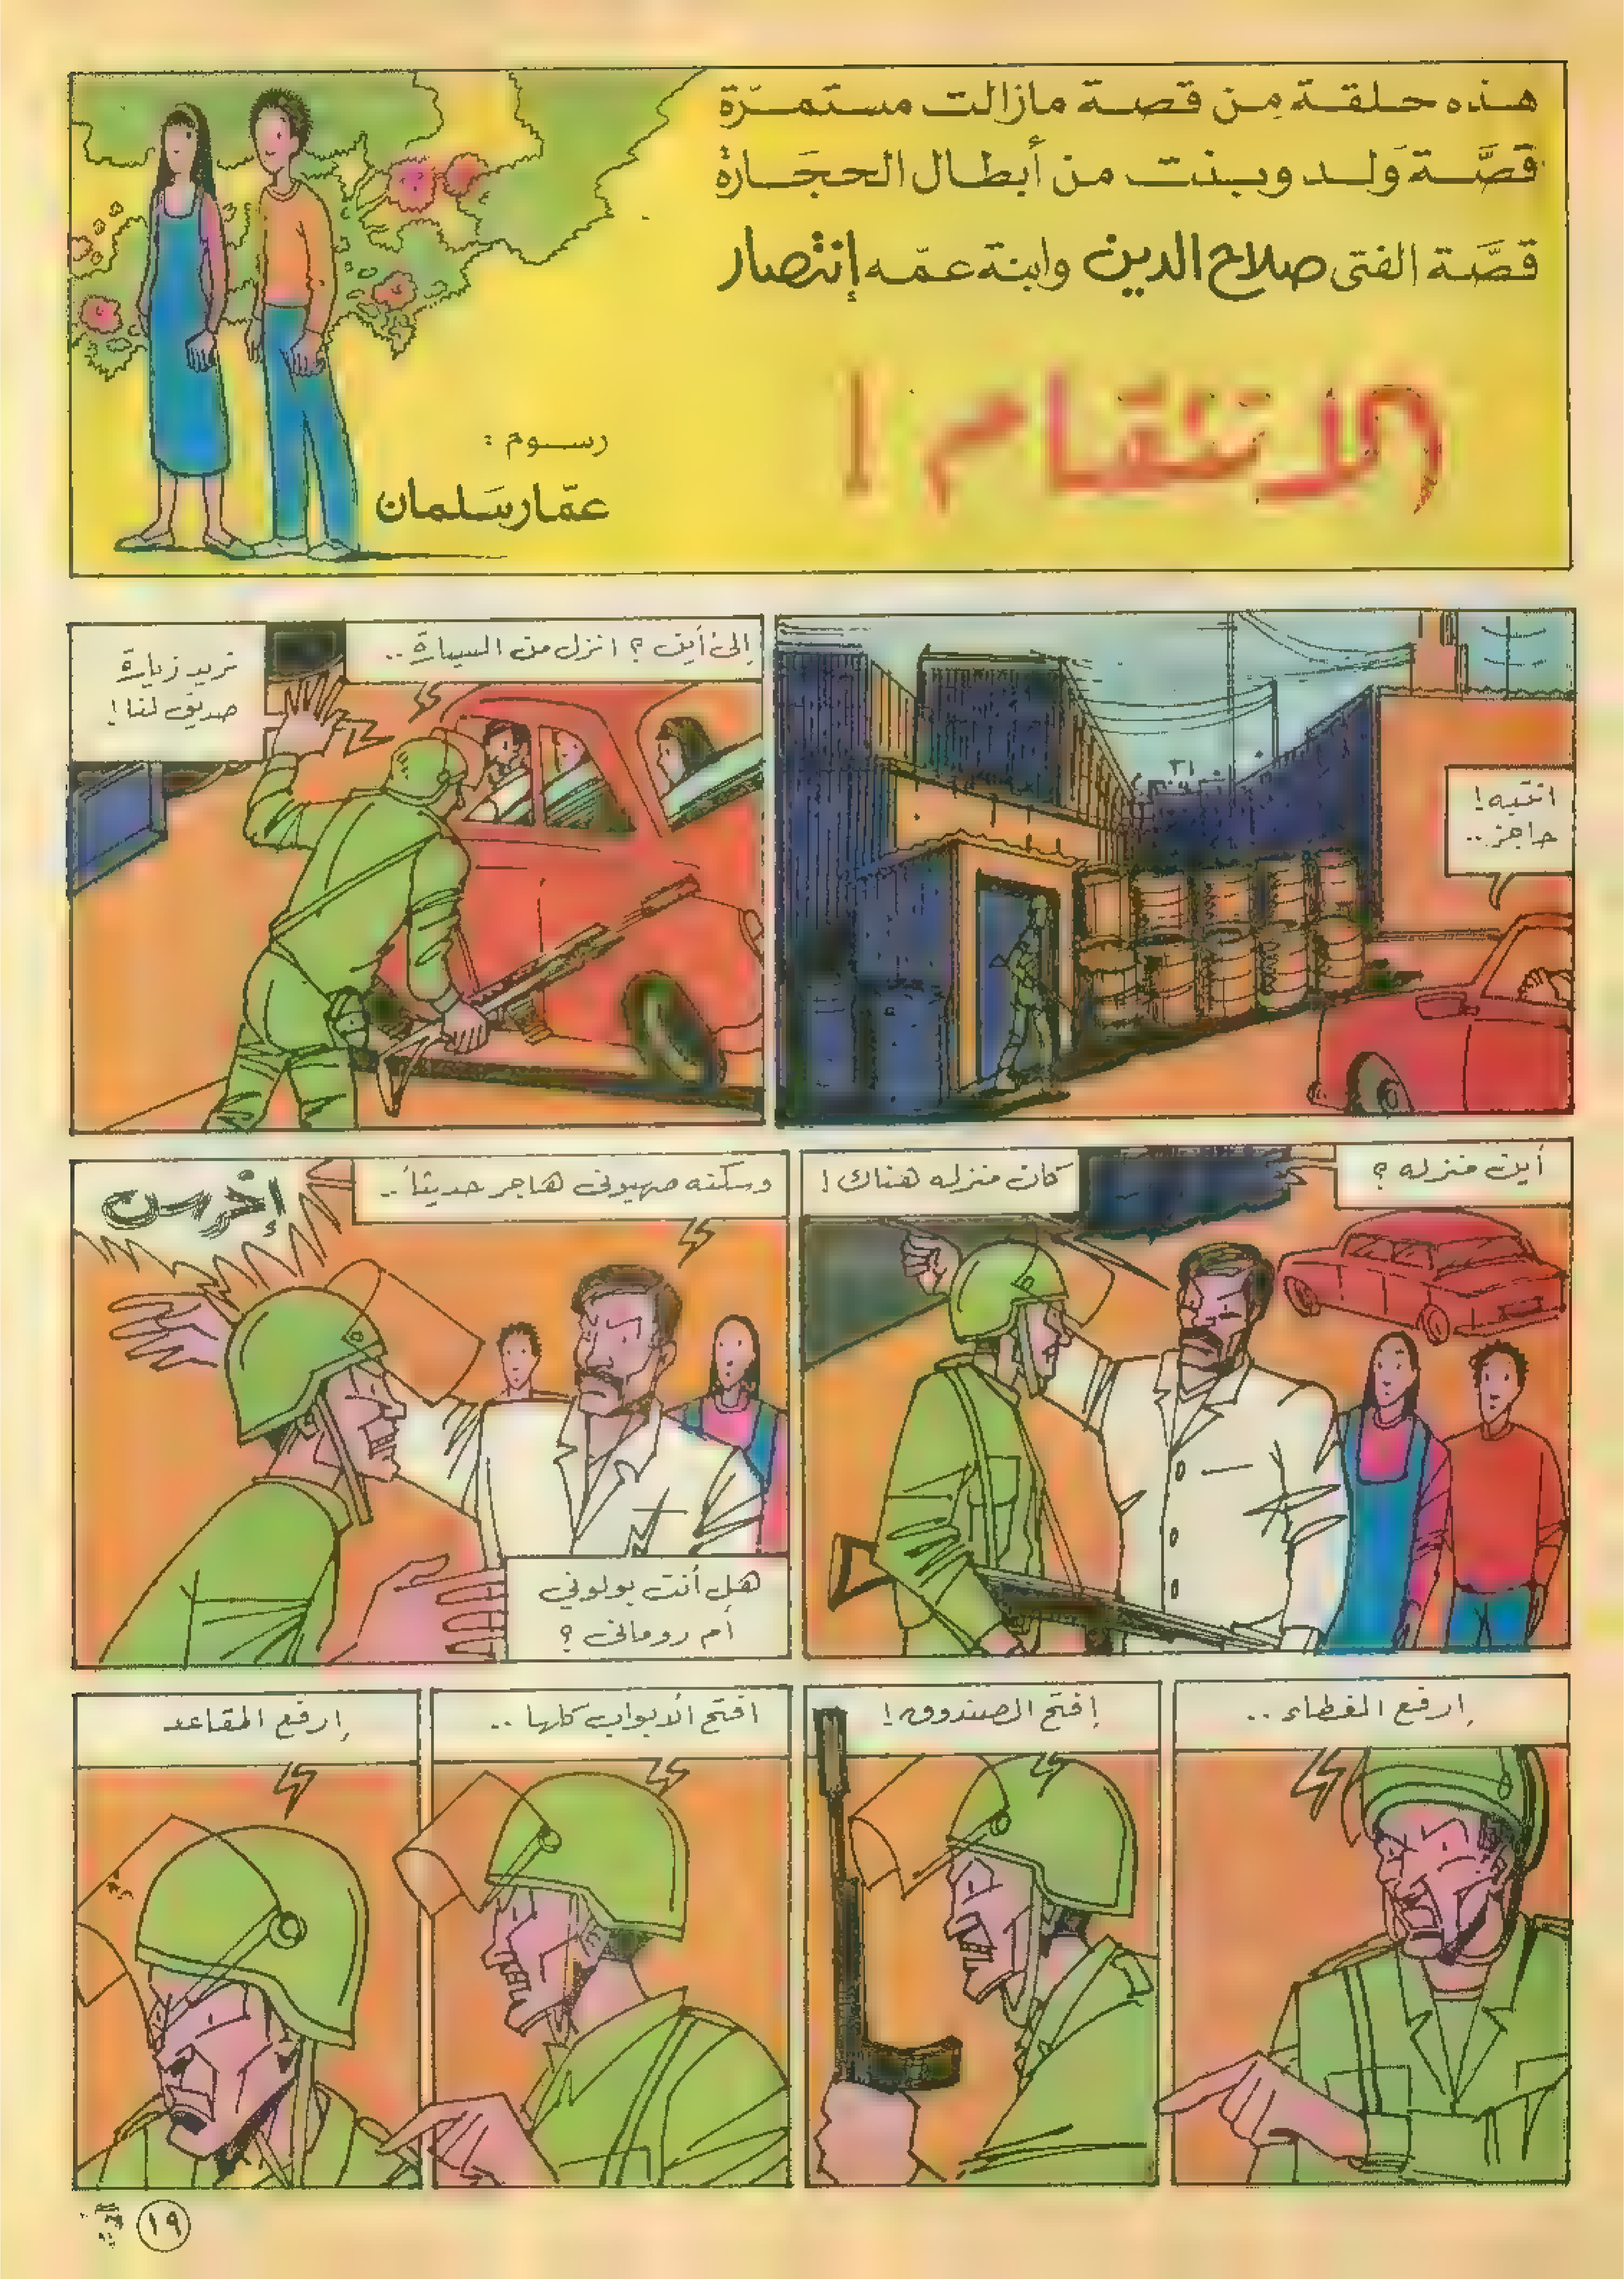 هذه حلقة مِن قصة مازالت مستمرّة
قصَّة وَلد وبنت من أبطال الحجَارة
قصَّة الفتى صلاح الدين وابنة عمّه إنتصار
الانتقام !
رسوم :
عمّار سَلمان
انتبه !
حاجز ..
إلى أين ؟ انزل من السيارة ..
نريد زيارة
صديق لنا !
أين منزله ؟
كان منزله هناك !
وسكنه صهيوني هاجر حديثاً ..
إخرسْ
هل أنت بولوني
أم روماني ؟
إرفع الغطاء ..
إفتح الصندوق !
افتح الأبواب كلها ..
إرفع المقاعد
١٩